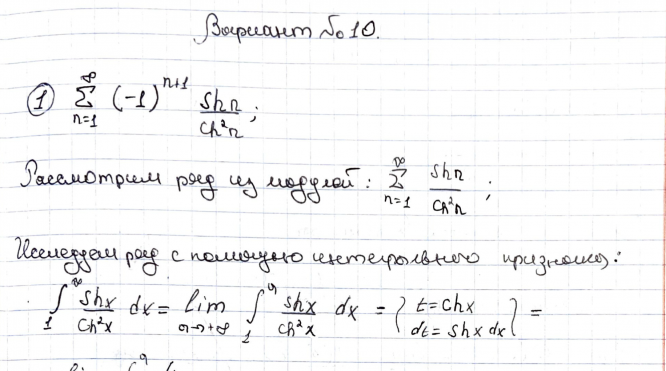 Вариант №10.
① ∑_{n=1}^{∞} (-1)^{n+1} shn/ch²n;
Рассмотрим ряд из модулей: ∑_{n=1}^{∞} shn/ch²n;
Исследуем ряд с помощью интегрального признака:
∫_{1}^{∞} shx/ch²x dx = lim_{a→+∞} ∫_{1}^{a} shx/ch²x dx = { t=chx dt=shx dx } =